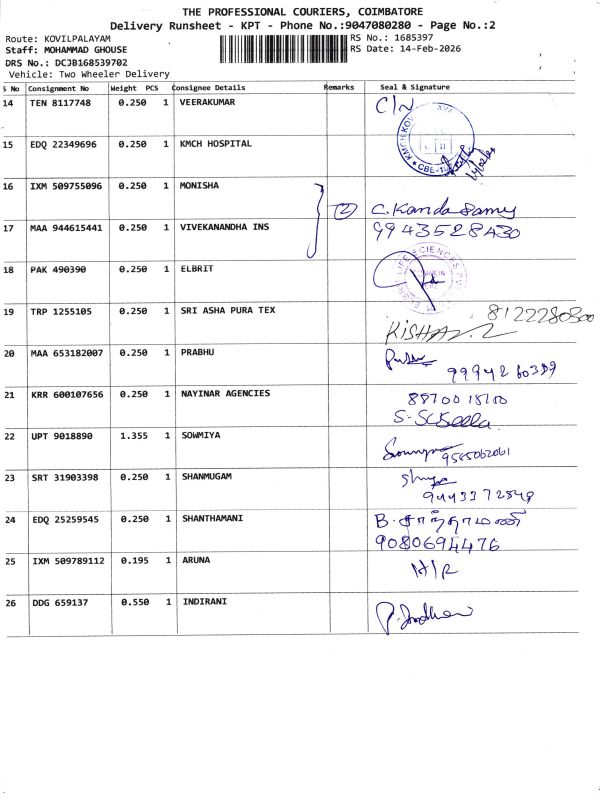 THE PROFESSIONAL COURIERS, COIMBATORE
Delivery Runsheet - KPT - Phone No.:9047080280 - Page No.:2
Route: KOVILPALAYAM
RS No.: 1685397
Staff: MOHAMMAD GHOUSE
RS Date: 14-Feb-2026
DRS No.: DCJB168539702
Vehicle: Two Wheeler Delivery
S No Consignment No Weight PCS Consignee Details Remarks Seal & Signature
14 TEN 8117748 0.250 1 VEERAKUMAR C/N
15 EDQ 22349696 0.250 1 KMCH HOSPITAL
16 IXM 509755096 0.250 1 MONISHA
(2) C. Kandasamy
17 MAA 944615441 0.250 1 VIVEKANANDHA INS 9943528430
18 PAK 490390 0.250 1 ELBRIT
LIFE SCIENCES PVT
19 TRP 1255105 0.250 1 SRI ASHA PURA TEX
KISHAN.
20 MAA 653182007 0.250 1 PRABHU
21 KRR 600107656 0.250 1 NAYINAR AGENCIES
22 UPT 9018890 1.355 1 SOWMIYA
9585062061
23 SRT 31903398 0.250 1 SHANMUGAM
9443372548
24 EDQ 25259545 0.250 1 SHANTHAMANI B. சாந்தாமணி
9080694476
25 IXM 509789112 0.195 1 ARUNA H/R
26 DDG 659137 0.550 1 INDIRANI